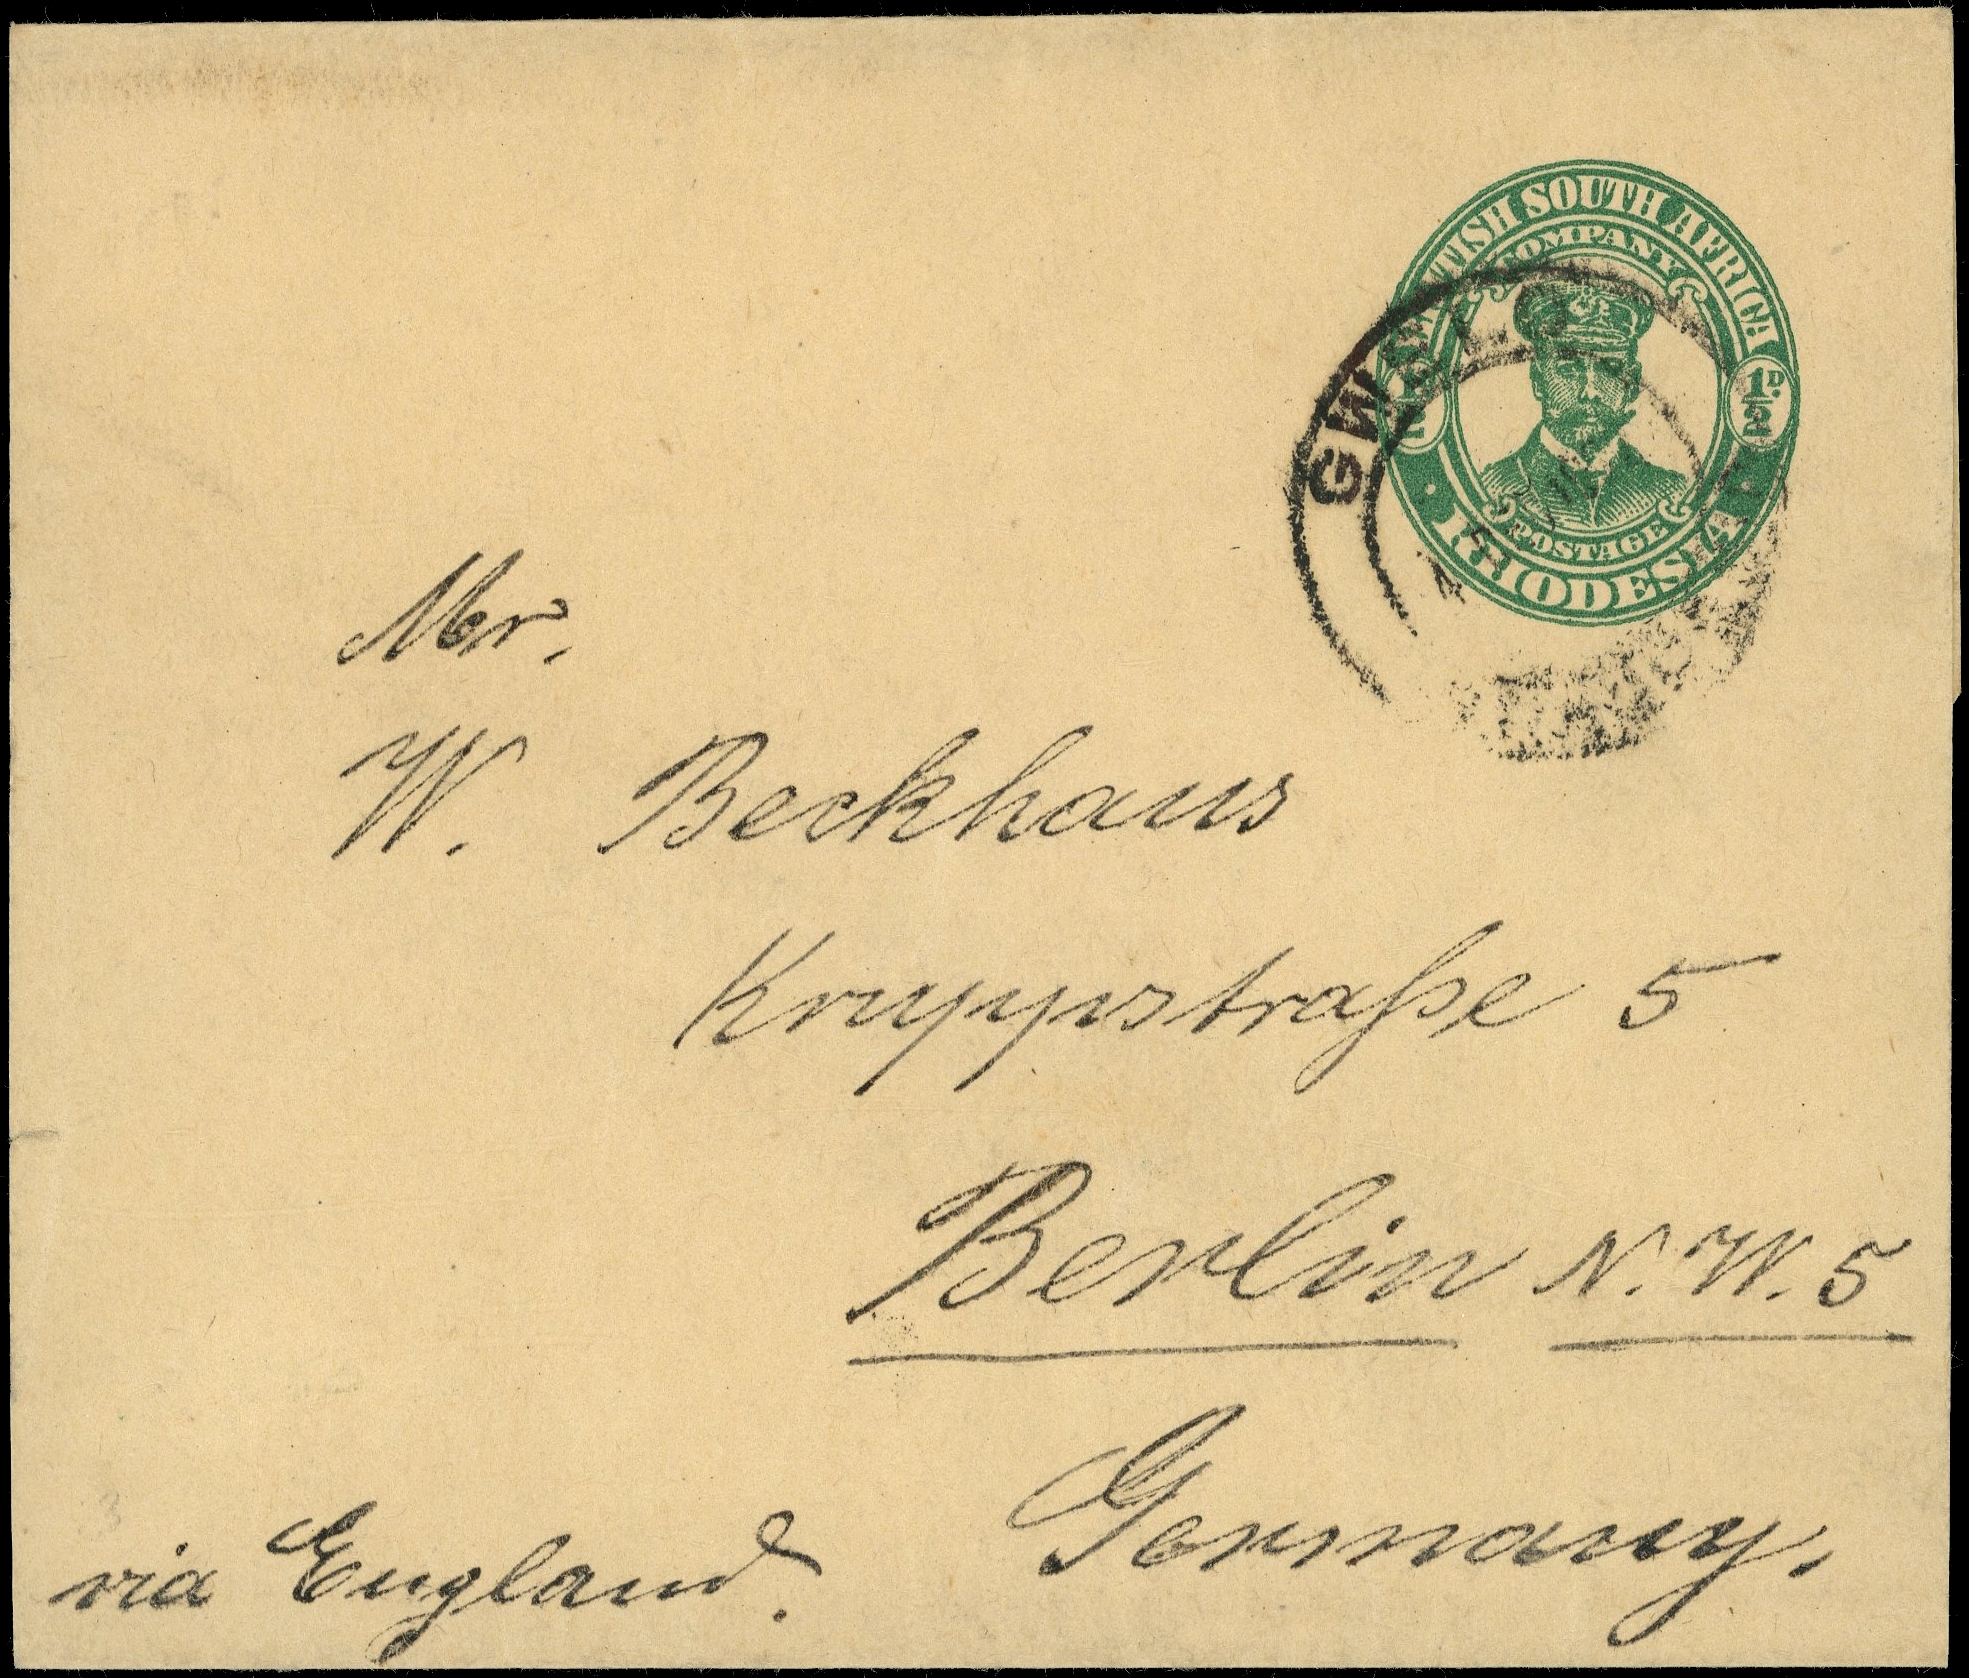 BRITISH SOUTH AFRICA
COMPANY
½D. ½D.
POSTAGE
RHODESIA
Mr.
W. Beckhaus
Kruppstraße 5
Berlin N.W. 5
Germany.
via England.